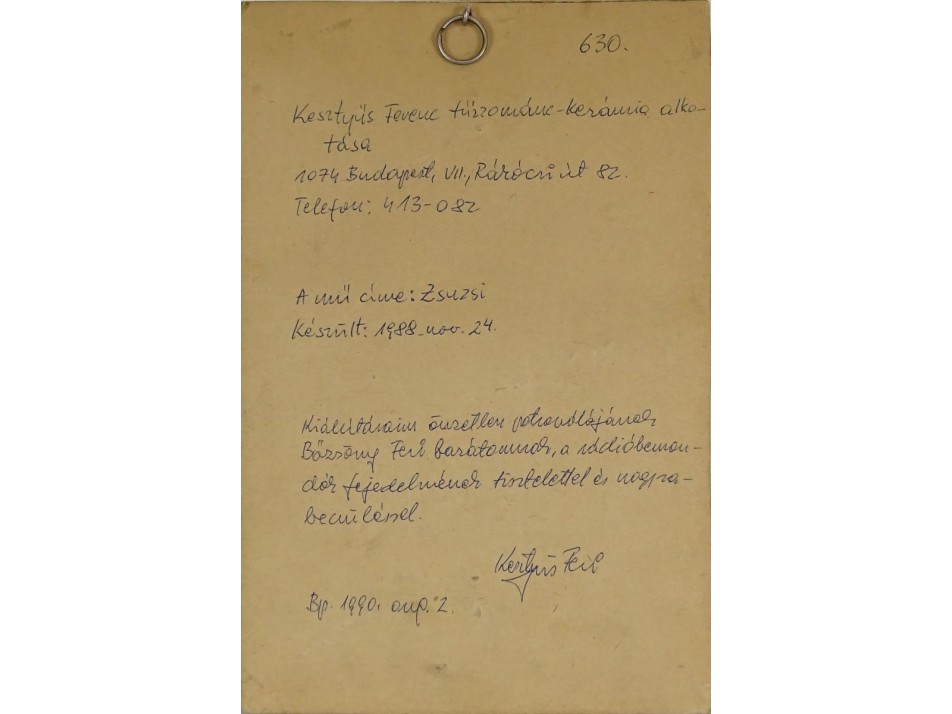 630.
Kesztyűs Ferenc tűzzománc-kerámia alko-
tása
1074 Budapest, VII., Rákóczi út 82.
Telefon: 413-082
A mű címe: Zsuzsi
Készült: 1988. nov. 24.
Kiállításaim önzetlen patronálójának
Bőzsöny Feri barátomnak, a rádióbemon-
dók fejedelmének tisztelettel és nagyra-
becsüléssel.
Kesztyűs Feri
Bp. 1990. aug. 2.